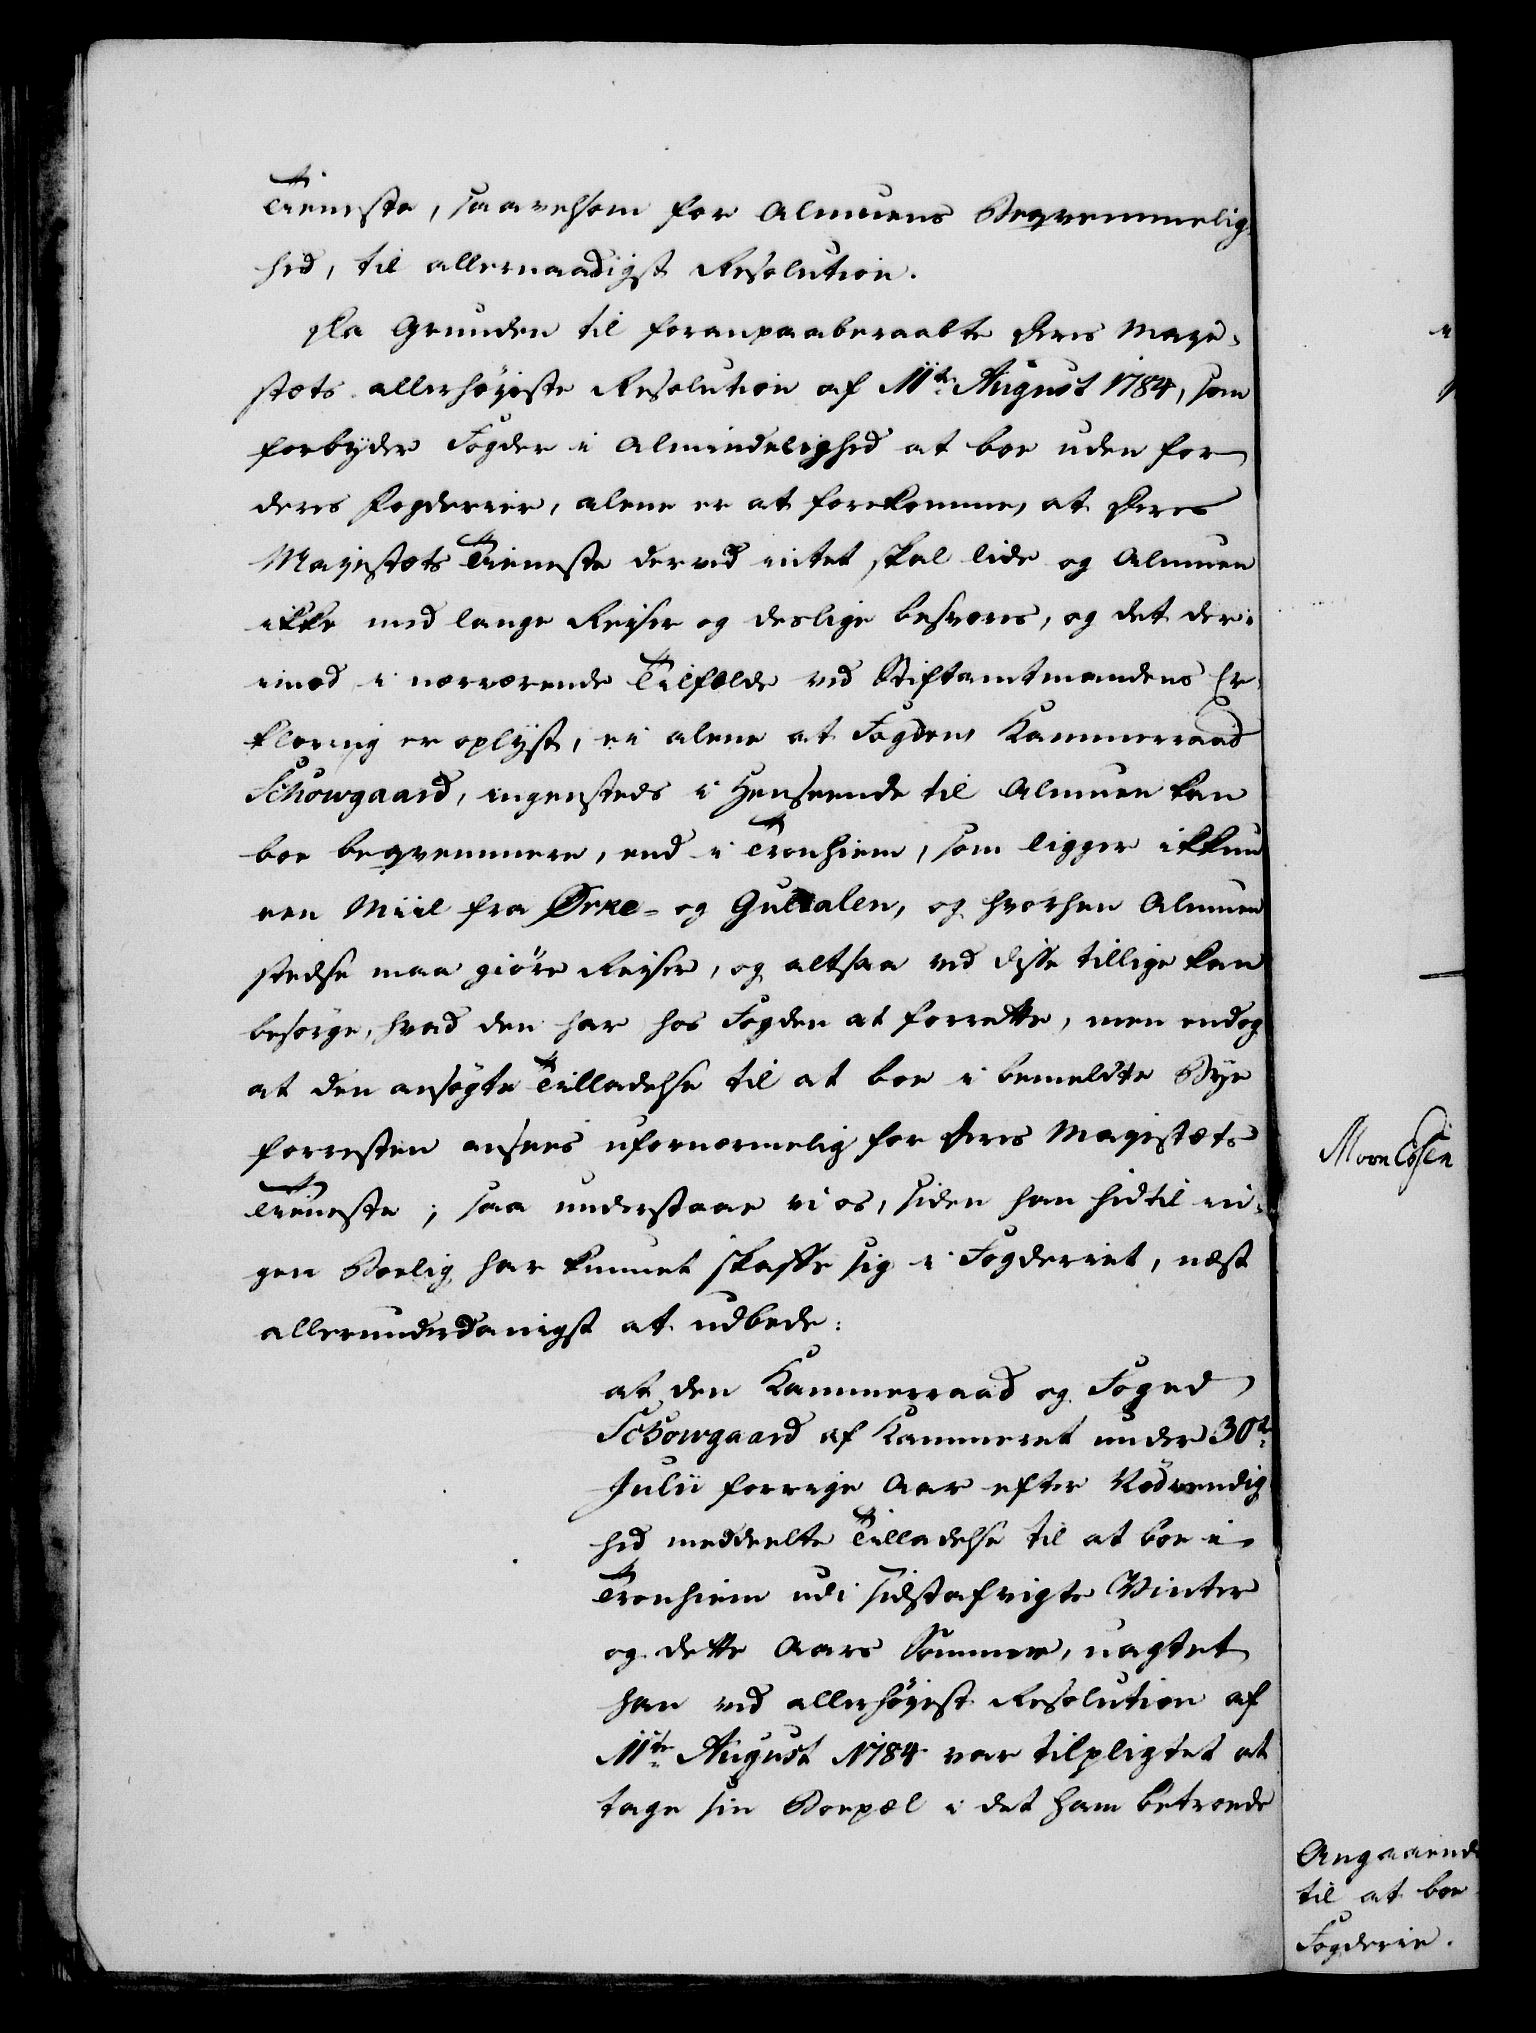 Tieneste, saavelsom for Almuens Beqvemmelig-
hed, til allernaadigst Resolution.
Da Grunden til foranpaaberaabte Deres Maje-
stæts allerhøyeste Resolution af 11te August 1784, som
forbyder Fogder i Almindelighed at boe uden for
deres Fogderier, alene er at forekomme, at Deres
Majestæts Tieneste derved intet skal lide og Almuen
ikke med lange Reiser og deslige besværes, og det der-
imod i nærværende Tilfælde ved Stiftamtmandens Er-
klæring er oplyst, ei alene at Fogden Kammerraad
Schowgaard, ingensteds i Henseende til Almuen kan
boe beqvemmere, end i Tronhiem, som ligger ikkun
een Miil fra Ørke- og Guldalen, og hvorhen Almuen
stedse maa giøre Reiser, og altsaa ved disse tillige kan
besørge, hvad den har hos Fogden at forrette, men endog
at den ansøgte Tilladelse til at boe i bemeldte Bye
forresten ansees ufornærmelig for Deres Majestæts
Tieneste; saa understaae vi os, siden han hidtil in-
gen Boelig har kunnet skaffe sig i Fogderiet, næst
allerunderdanigst at udbede:
at den Kammerraad og Foged
Schowgaard af Kammeret under 30te
Julii forrige Aar efter Nødvendig-
hed meddeelte Tilladelse til at boe i
Tronhiem udi sidstafvigte Vinter
og dette Aars Sommer, uagtet
han ved allerhøyest Resolution af
11te August 1784 var tilpligtet at
tage sin Boepæl i det ham betroede
Angaaende
til at boe
Fogderie.